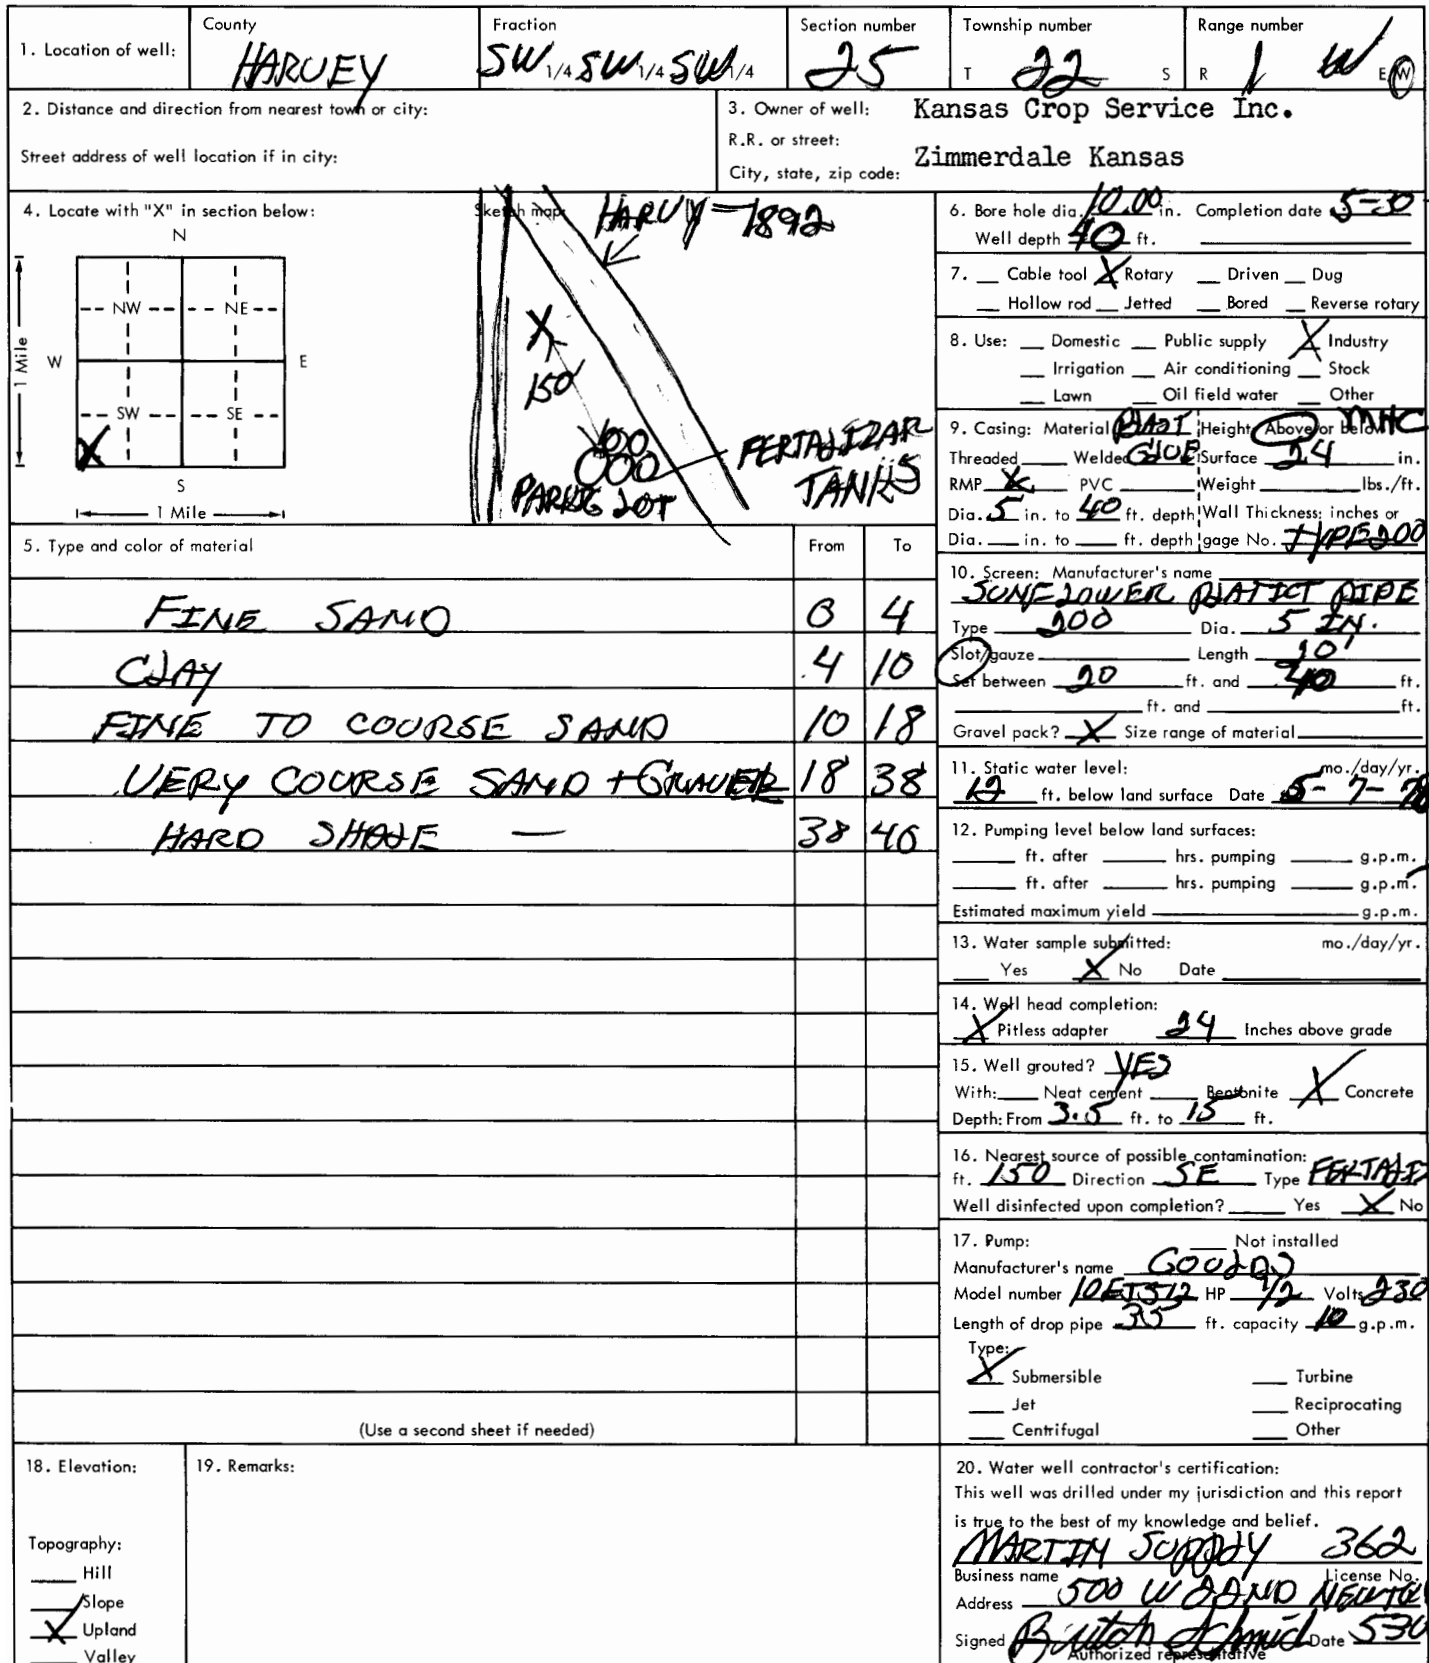 1. Location of well: County HARVEY Fraction SW 1/4 SW 1/4 SW 1/4 Section number 25 Township number T 22 S Range number R 1 W E/W
2. Distance and direction from nearest town or city:
Street address of well location if in city:
3. Owner of well: Kansas Crop Service Inc.
R.R. or street:
City, state, zip code: Zimmerdale Kansas
4. Locate with "X" in section below:
N
NW NE
W E
SW SE
X
S
1 Mile
1 Mile
Sketch map:
HARVY-1892
X
150'
FERTALIZAR
TANKS
PARKG LOT
5. Type and color of material From To
FINE SAND 0 4
CLAY 4 10
FINE TO COURSE SAND 10 18
VERY COURSE SAND + GRAVEL 18 38
HARD SHALE — 38 40
(Use a second sheet if needed)
6. Bore hole dia. 10.00 in. Completion date 5-30
Well depth 40 ft.
7. Cable tool X Rotary Driven Dug
Hollow rod Jetted Bored Reverse rotary
8. Use: Domestic Public supply X Industry
Irrigation Air conditioning Stock
Lawn Oil field water Other
9. Casing: Material Height: Above or below
Threaded Welded GLUE Surface 24 in.
RMP X PVC Weight lbs./ft.
Dia. 5 in. to 40 ft. depth Wall Thickness: inches or
Dia. in. to ft. depth gage No. TYPE 200
10. Screen: Manufacturer's name
SUNFLOWER PLATICT PIPE
Type 200 Dia. 5 IN.
Slot/gauze Length 20'
Set between 20 ft. and 40 ft.
ft. and ft.
Gravel pack? X Size range of material
11. Static water level: mo./day/yr.
12 ft. below land surface Date 5-7-78
12. Pumping level below land surfaces:
ft. after hrs. pumping g.p.m.
ft. after hrs. pumping g.p.m.
Estimated maximum yield g.p.m.
13. Water sample submitted: mo./day/yr.
Yes X No Date
14. Well head completion:
X Pitless adapter 24 Inches above grade
15. Well grouted? YES
With: Neat cement Bentonite X Concrete
Depth: From 3.5 ft. to 15 ft.
16. Nearest source of possible contamination:
ft. 150 Direction SE Type FERTALIZ
Well disinfected upon completion? Yes X No
17. Pump: Not installed
Manufacturer's name GOULDS
Model number 10EJ512 HP 1/2 Volts 230
Length of drop pipe 35 ft. capacity 10 g.p.m.
Type:
X Submersible Turbine
Jet Reciprocating
Centrifugal Other
18. Elevation:
Topography:
Hill
Slope
X Upland
Valley
19. Remarks:
20. Water well contractor's certification:
This well was drilled under my jurisdiction and this report
is true to the best of my knowledge and belief.
MARTIN SUPPLY 362
Business name License No.
Address 500 W 22ND NEWTON
Signed Butch Schmid Date 530
Authorized representative